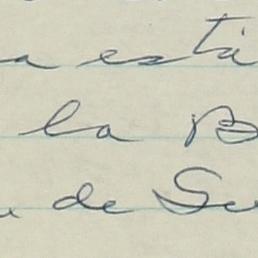 a está
la B
de Su